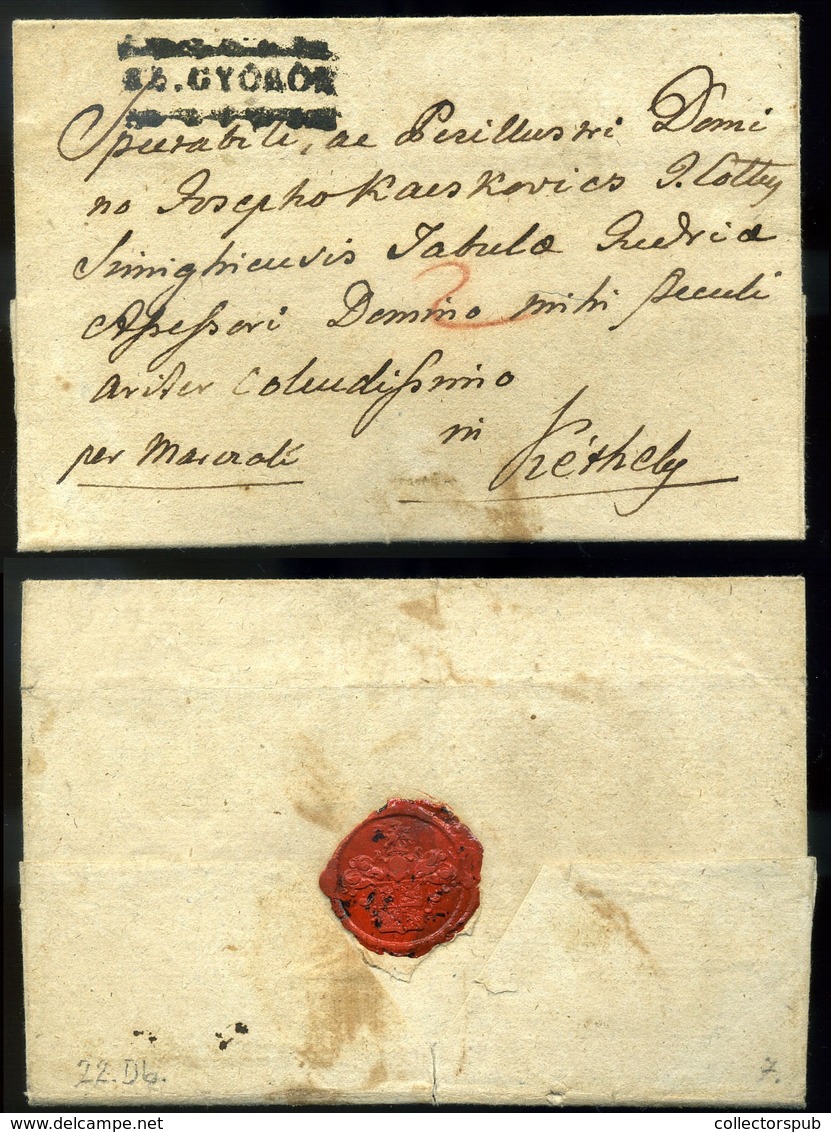 SZ. GYÖRÖK
Spectabili, ac Perillustri Domi
no Josepho Kacskovics J. Cottus
Simighiensis Tabulæ Judriæ
Assessori Domino mihi peculi
ariter Colendissimo
per Marczali
in
Kéthely
2
22. Db.
7.
collectorspub